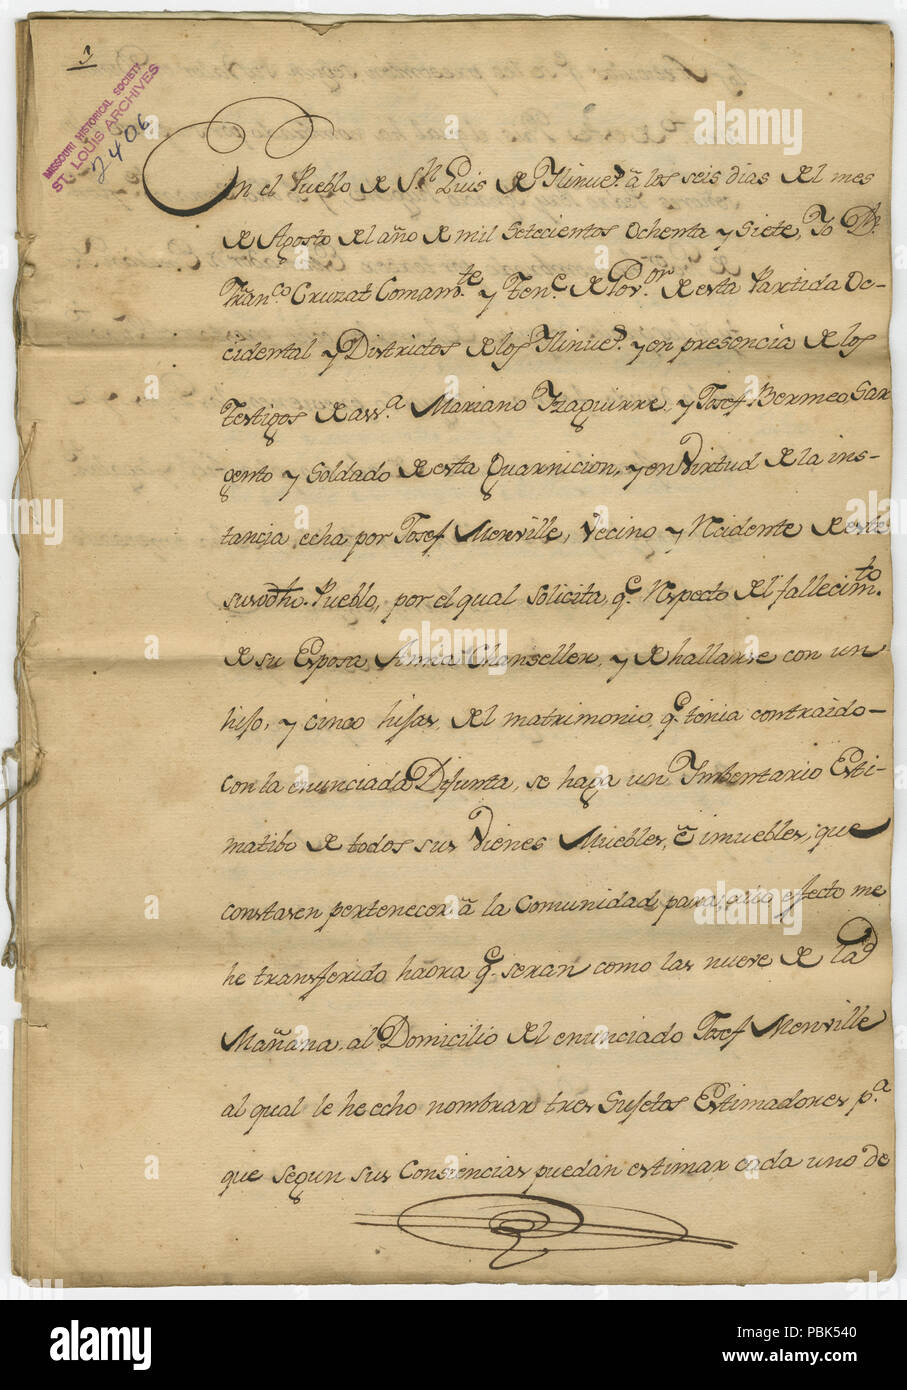 1
MISSOURI HISTORICAL SOCIETY
ST. LOUIS ARCHIVES
2406
En el Pueblo de Sn Luis de Ylinues. â los seis dias del mes
de Agosto del año de mil Setecientos Ochenta y Siete, Yo Dn.
Franco Cruzat Comante. y Tente. de Govor. de esta Partida Oc-
cidental y Districtos de los Ylinues. y en presencia de los
Testigos de assa. Mariano Yzaguirre, y Josef Bermeo, Sar
gento y Soldado de esta Guarnicion, y en Virtud de la ins-
tancia echa por Josef Menville, Vecino y Recidente de este
susodho. Pueblo, por el qual Solicita, qe. Respecto del fallecimto.
de su Esposa Anna Chanseller, y de hallarse con un
hijo, y cinco hijas, del matrimonio qe. tenia contraido-
con la enunciada Difunta, se haga un Imbentario Esti-
matibo de todos sus Vienes Muebles, ê imuebles, que
constasen pertenecer â la Comunidad, para cuio efecto me
he transferido haora qe. seran como las nueve de la
Mañana, al Domicilio del enunciado Josef Menville
al qual le he echo nombrar tres Sujetos Estimadores pa.
que segun sus Consiencias puedan estimar cada uno de
alamy
a
alamy
Image ID: PBK540
www.alamy.com